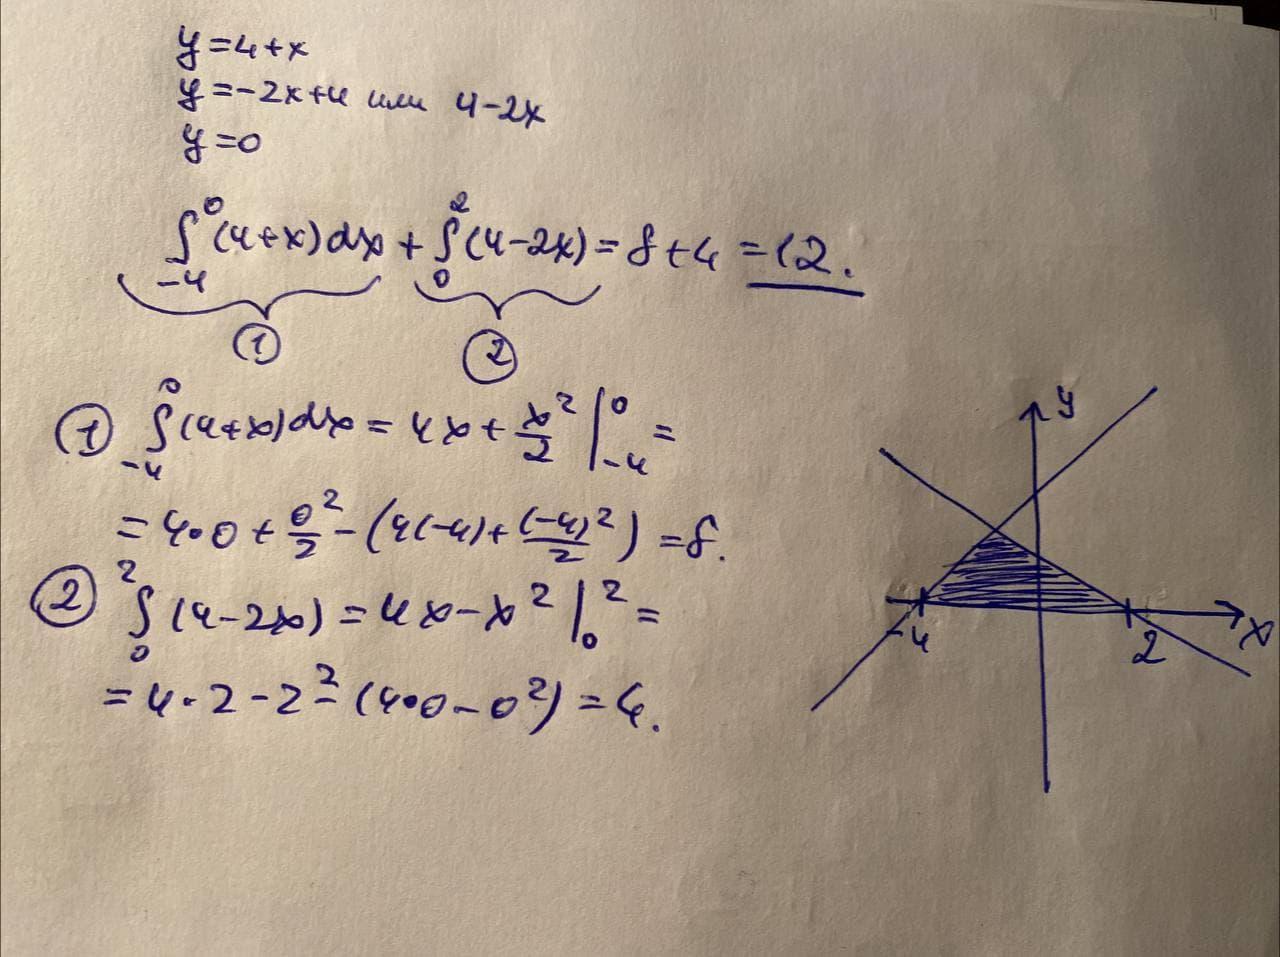 y=4+x
y=-2x+4 или 4-2x
y=0
∫₋₄⁰(4+x)dx + ∫₀²(4-2x) = 8+4 = 12.
① ②
① ∫₋₄⁰(4+x)dx = 4x + x²/2 |₋₄⁰ =
= 4·0 + 0²/2 - (4(-4) + (-4)²/2) = 8.
② ∫₀²(4-2x) = 4x - x² |₀² =
= 4·2 - 2² - (4·0 - 0²) = 4.
y
-4 2 x